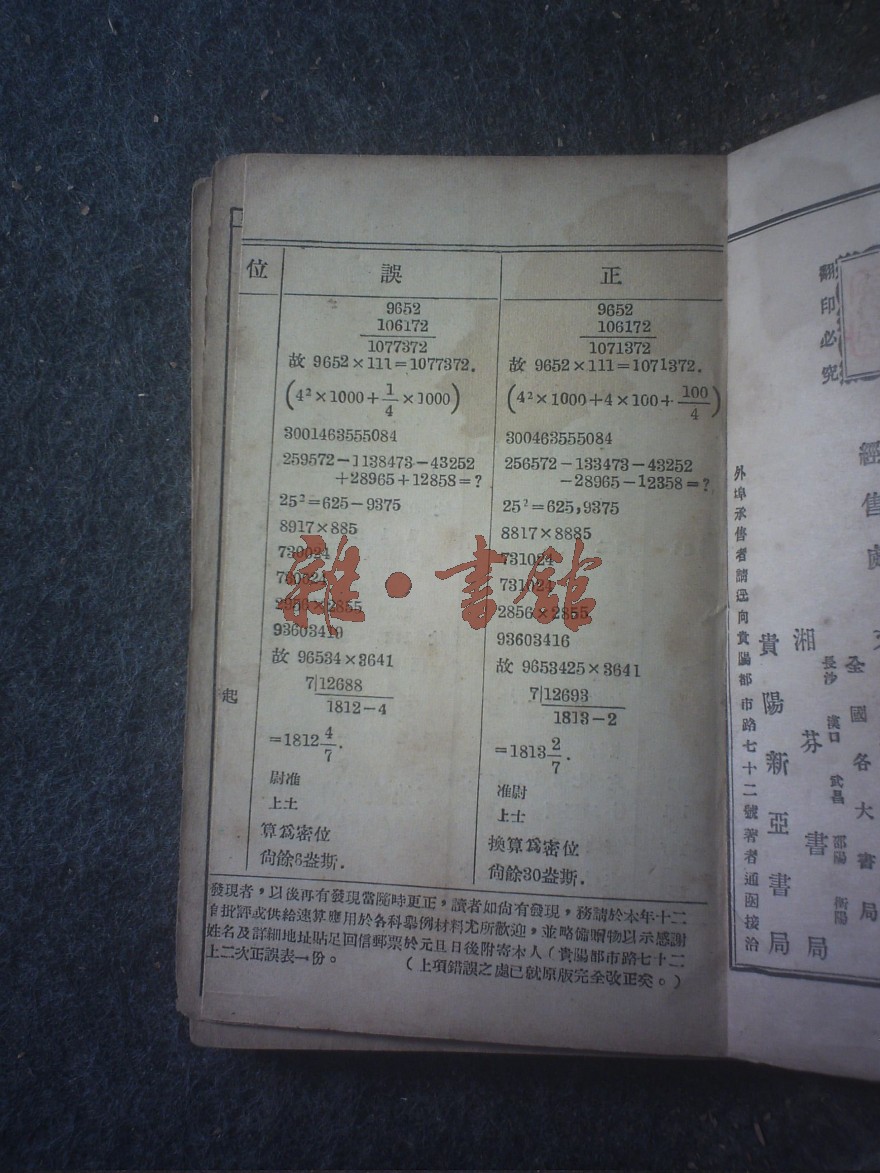 位 誤 正
9652 9652
106172 106172
1077372 1071372
故 9652×111=1077372. 故 9652×111=1071372.
(4²×1000+1/4×1000) (4²×1000+4×100+100/4)
3001463555084 300463555084
259572-1138473-43252 256572-133473-43252
+28965+12858=? -28965-12358=?
25²=625-9375 25²=625,9375
8917×885 8817×8885
730024 731024
731024
2856×2855
93603416
故 96534×3641 故 9653425×3641
起 7|12688 7|12693
1812-4 1813-2
=1812 4/7. =1813 2/7.
尉准 准尉
上土 上士
算爲密位 換算爲密位
尙餘6盎斯. 尙餘30盎斯.
發現者，以後再有發現當隨時更正，讀者如尙有發現，務請於本年十二
批評或供給速算應用於各科舉例材料尤所歡迎，並略備贈物以示感謝
姓名及詳細地址貼足回信郵票於元旦日後附寄本人（貴陽都市路七十二
上二次正誤表一份。 （上項錯誤之處已就原版完全改正矣。）
翻印必究
經售處
全國各大書局
長沙 漢口 武昌 邵陽 衡陽
湘芬書局
貴陽新亞書局
外埠承售者請逕向貴陽都市路七十二號著者通函接洽
雜·書館